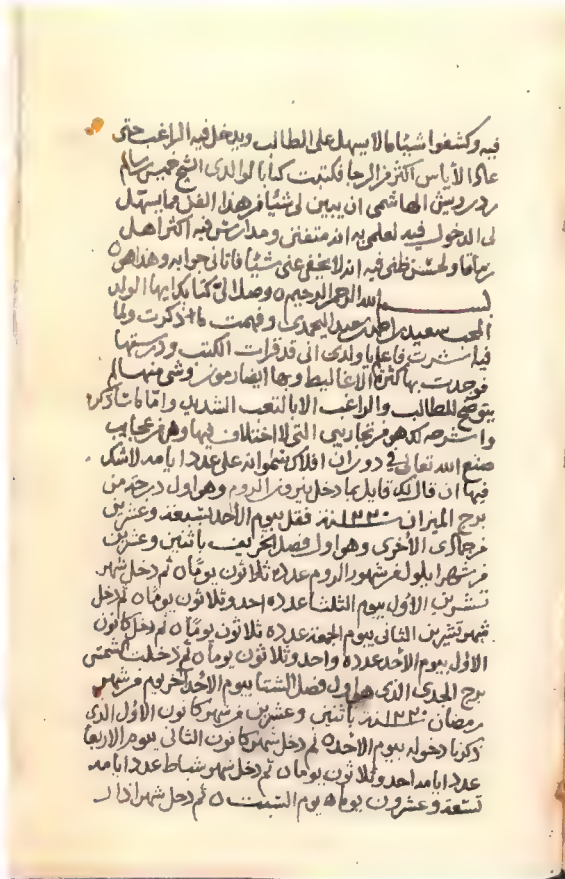 فيه وكشفوا شيئا مما لا يسهل على الطالب ويدخل فيه الراغب حتى
عاد الأياس أكثر من الرجا فكتبت كتابا لوالدي الشيخ خميس بن سالم
بن درويش الهاشمي ان يبين لي شيئا من هذا الفن مما يسهل
لي الدخول فيه لعلمي به انه متفنن ومدارس فيه اكثر اهل
زماننا ولحسن ظني فيه انه لا يخفي عني شيئا فاتاني جوابه وهذا هو ٥
بسم الله الرحمن الرحيم ٥ وصل الي كتابك ايها الولد
المحب سعيد بن احمد بن عبيد اليحمدي وفهمت ما ذكرت ولما
فيه اشرت فاعلم يا ولدي اني قد قرات الكتب ودرستها
فوجدت بها كثرة الاغاليط وبها ايضا رموز وشي منها لم
يتوضح للطالب والراغب الا بالتعب الشديد واما ما سأذكره
واشرحه لك هو من تجاريبي التي لا اختلاف فيها وهو من عجايب
صنع الله تعالى في دوران افلاك سمواته على عدد ايامه لا شك
فيها ان قال لك قايل بما دخل نيروز الروم وهو اول درجة من
برج الميزان سنة ١٣٣٠ فقل بيوم الأحد تسعة وعشرين
من جمادى الأخرى وهو اول فصل الخريف باثنين وعشرين
من شهر ايلول من شهور الروم عدده ثلاثون يوما ٥ ثم دخل شهر
تشرين الأول بيوم الثلثا عدده احد وثلاثون يوما ٥ ثم دخل
شهر تشرين الثاني بيوم الجمعة عدده ثلاثون يوما ٥ ثم دخل كانون
الاول بيوم الأحد عدده واحد وثلاثون يوما ٥ ثم دخلت الشمس
برج الجدي الذي هو اول فصل الشتا بيوم الأحد اخر يوم من شهر
رمضان سنة ١٣٣٠ باثنين وعشرين من شهر كانون الأول الذي
ذكرنا دخوله بيوم الأحد ٥ ثم دخل شهر كانون الثاني بيوم الاربعا
عدد ايامه احد وثلاثون يوما ٥ ثم دخل شهر شباط عدد ايامه
تسعة وعشرون يوما بيوم السبت ٥ ثم دخل شهر اذار